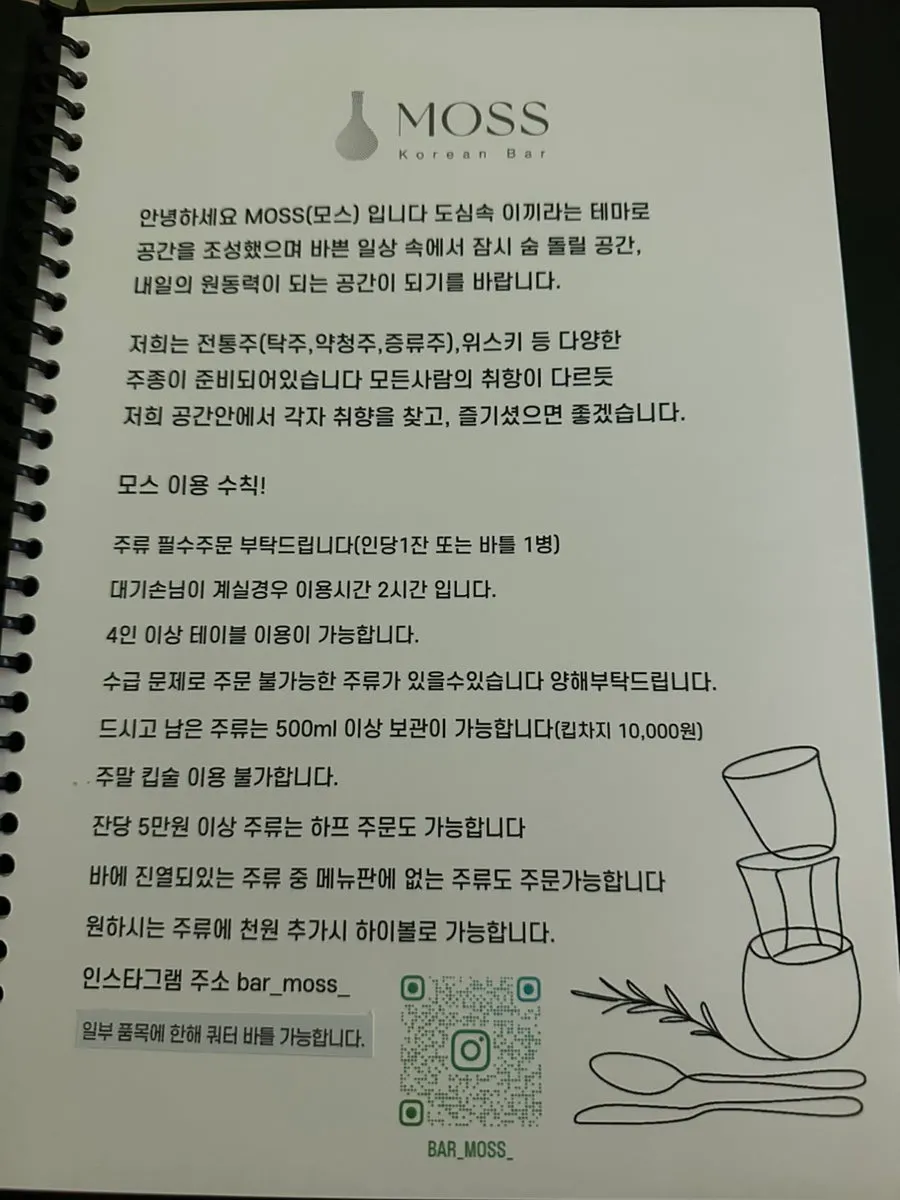 MOSS
Korean Bar
안녕하세요 MOSS(모스) 입니다 도심속 이끼라는 테마로
공간을 조성했으며 바쁜 일상 속에서 잠시 숨 돌릴 공간,
내일의 원동력이 되는 공간이 되기를 바랍니다.
저희는 전통주(탁주,약청주,증류주),위스키 등 다양한
주종이 준비되어있습니다 모든사람의 취향이 다르듯
저희 공간안에서 각자 취향을 찾고, 즐기셨으면 좋겠습니다.
모스 이용 수칙!
주류 필수주문 부탁드립니다(인당1잔 또는 바틀 1병)
대기손님이 계실경우 이용시간 2시간 입니다.
4인 이상 테이블 이용이 가능합니다.
수급 문제로 주문 불가능한 주류가 있을수있습니다 양해부탁드립니다.
드시고 남은 주류는 500ml 이상 보관이 가능합니다(킵차지 10,000원)
주말 킵술 이용 불가합니다.
잔당 5만원 이상 주류는 하프 주문도 가능합니다
바에 진열되있는 주류 중 메뉴판에 없는 주류도 주문가능합니다
원하시는 주류에 천원 추가시 하이볼로 가능합니다.
인스타그램 주소 bar_moss_
일부 품목에 한해 쿼터 바틀 가능합니다.
BAR_MOSS_